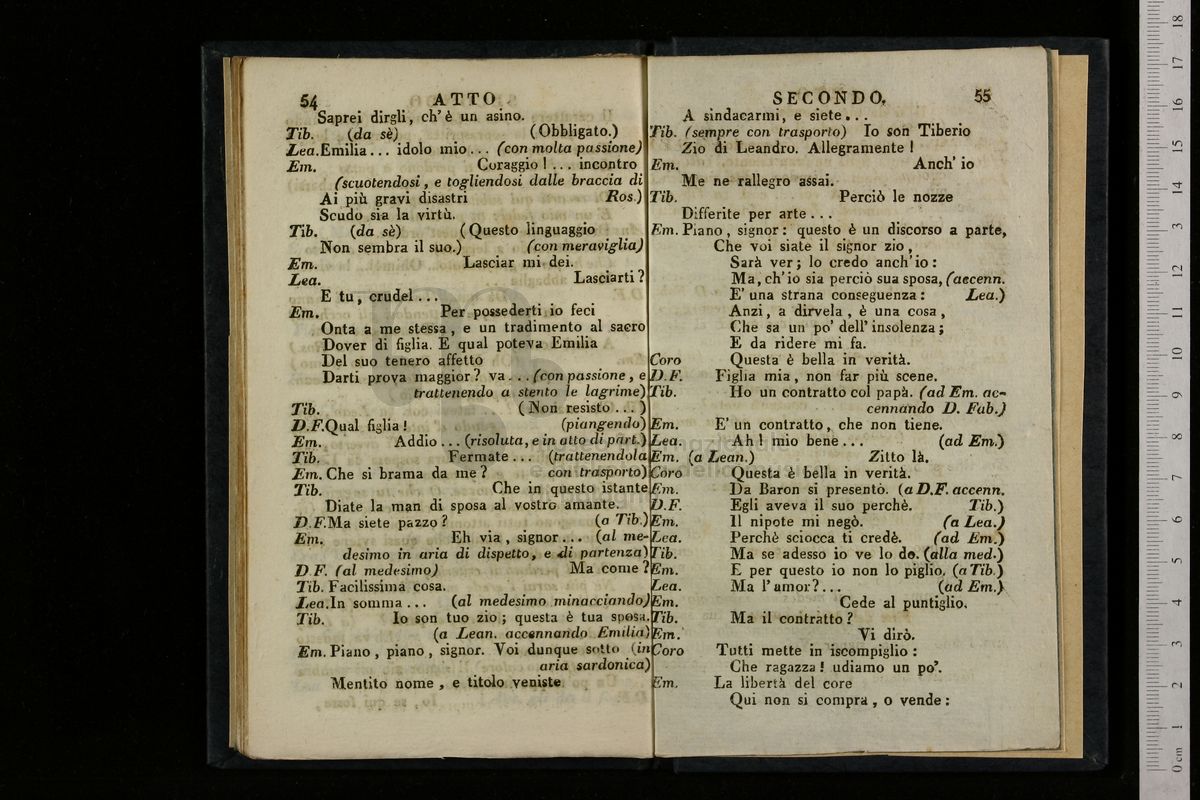 54 ATTO
Saprei dirgli, ch'è un asino.
Tib. (da sè) (Obbligato.)
Lea. Emilia... idolo mio... (con molta passione)
Em. Coraggio!... incontro
(scuotendosi, e togliendosi dalle braccia di
Ai più gravi disastri Ros.)
Scudo sia la virtù.
Tib. (da sè) (Questo linguaggio
Non sembra il suo.) (con meraviglia)
Em. Lasciar mi dei.
Lea. Lasciarti?
E tu, crudel...
Em. Per possederti io feci
Onta a me stessa, e un tradimento al sacro
Dover di figlia. E qual poteva Emilia
Del suo tenero affetto
Darti prova maggior? va... (con passione, e
trattenendo a stento le lagrime)
Tib. (Non resisto...)
D.F. Qual figlia! (piangendo)
Em. Addio... (risoluta, e in atto di part.)
Tib. Fermate... (trattenendola
Em. Che si brama da me? con trasporto)
Tib. Che in questo istante
Diate la man di sposa al vostro amante.
D.F. Ma siete pazzo? (a Tib.)
Em. Eh via, signor... (al me-
desimo in aria di dispetto, e di partenza)
D F. (al medesimo) Ma come?
Tib. Facilissima cosa.
Lea. In somma... (al medesimo minacciando)
Tib. Io son tuo zio; questa è tua sposa.
(a Lean. accennando Emilia)
Em. Piano, piano, signor. Voi dunque sotto (in
aria sardonica)
Mentito nome, e titolo veniste
SECONDO. 55
A sindacarmi, e siete...
Tib. (sempre con trasporto) Io son Tiberio
Zio di Leandro. Allegramente!
Em. Anch' io
Me ne rallegro assai.
Tib. Perciò le nozze
Differite per arte...
Em. Piano, signor: questo è un discorso a parte,
Che voi siate il signor zio,
Sarà ver; lo credo anch'io:
Ma, ch'io sia perciò sua sposa, (accenn.
E' una strana conseguenza: Lea.)
Anzi, a dirvela, è una cosa,
Che sa un po' dell'insolenza;
E da ridere mi fa.
Coro Questa è bella in verità.
D.F. Figlia mia, non far più scene.
Tib. Ho un contratto col papà. (ad Em. ac-
cennando D. Fab.)
Em. E' un contratto, che non tiene.
Lea. Ah! mio bene... (ad Em.)
Em. (a Lean.) Zitto là.
Coro Questa è bella in verità.
Em. Da Baron si presentò. (a D.F. accenn.
D.F. Egli aveva il suo perchè. Tib.)
Em. Il nipote mi negò. (a Lea.)
Lea. Perchè sciocca ti credè. (ad Em.)
Tib. Ma se adesso io ve lo do. (alla med.)
Em. E per questo io non lo piglio. (a Tib.)
Lea. Ma l'amor?... (ad Em.)
Em. Cede al puntiglio.
Tib. Ma il contratto?
Em. Vi dirò.
Coro Tutti mette in iscompiglio:
Che ragazza! udiamo un po'.
Em. La libertà del core
Qui non si compra, o vende: